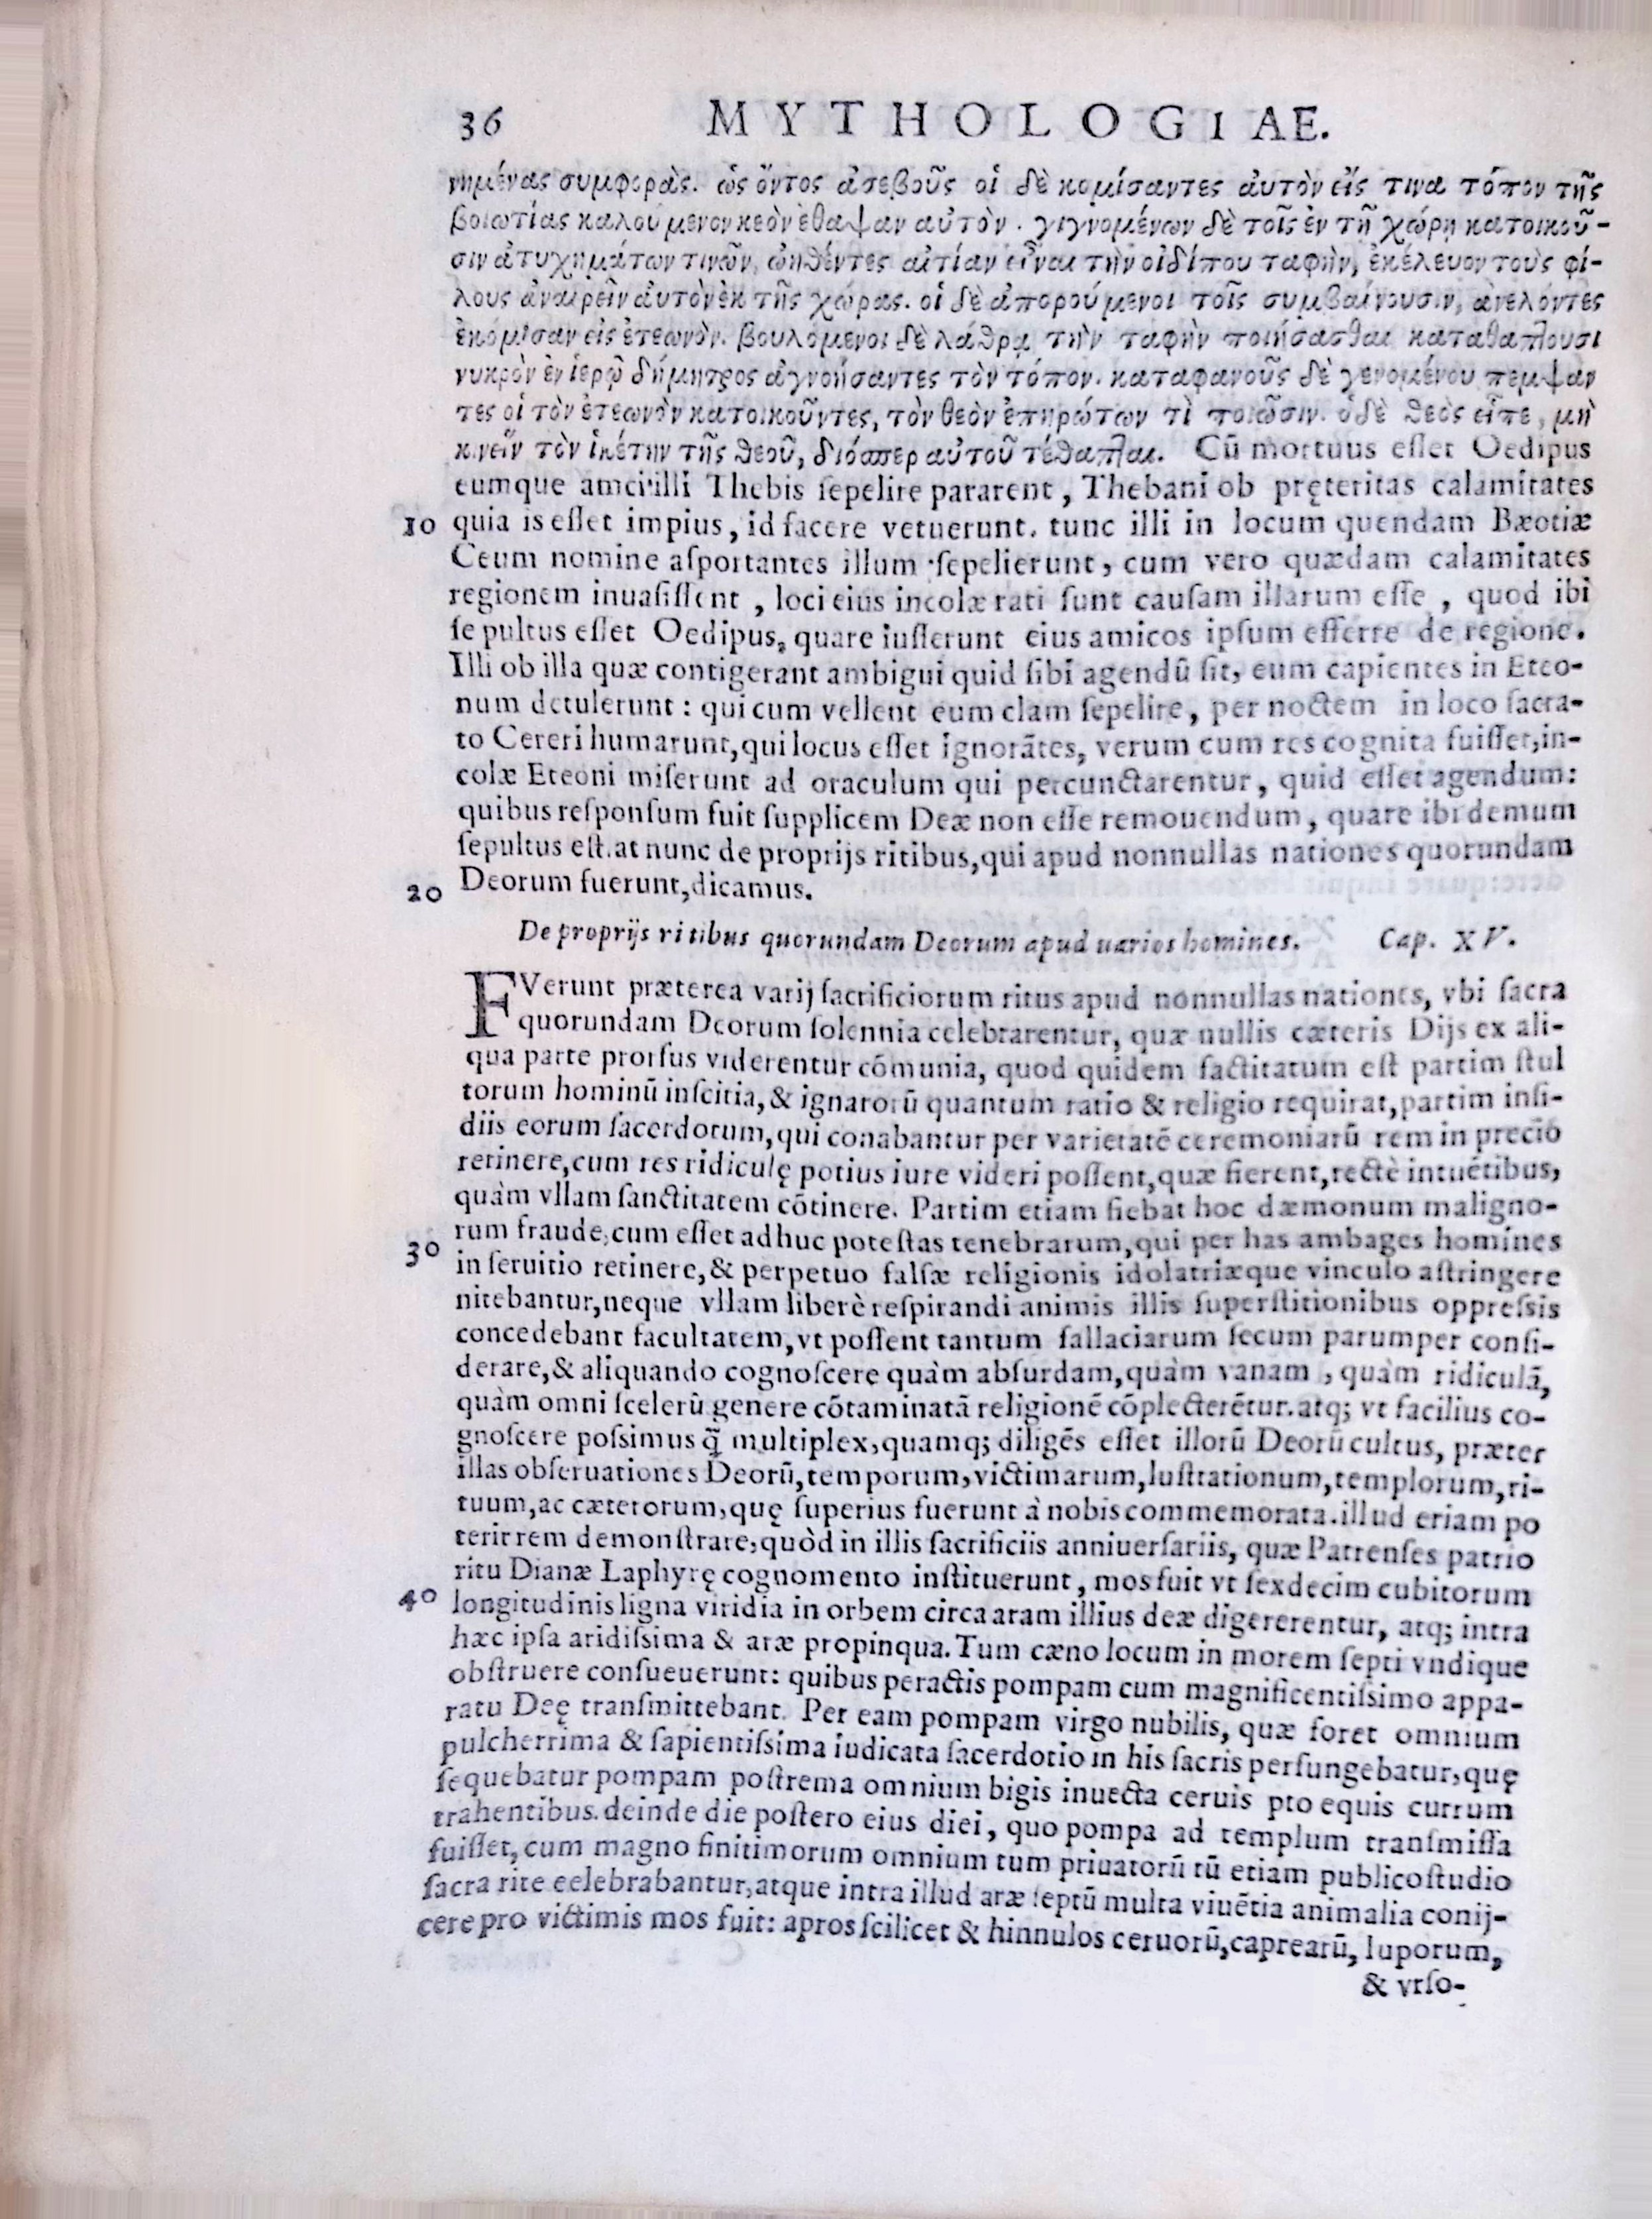 36 MYTHOLOGIAE.
νημένας συμφορὰς. ὡς ὄντος ἀσεβοῦς οἱ δὲ κομίσαντες ἀυτὸν εἴς τινα τόπον τῆς
βοιωτίας καλού μενον κεὸν ἐθαψαν αὐτὸν. γιγνομένων δὲ τοῖς ἐν τῇ χώρῃ κατοικοῦ-
σιν ἀτυχημάτων τινῶν, ὠηθέντες αἰτίαν εἶναι τὴν οἰδίπου ταφὴν, ἐκέλευον τοὺς φί-
λους ἀναιρεῖν ἀυτὸν ἐκ τῆς χώρας. οἱ δὲ ἀπορούμενοι τοῖς συμβαίνουσιν, ἀνελόντες
ἐκόμισαν εἰς ἐτεωνὸν. βουλόμενοι δὲ λάθρᾳ τὴν ταφὴν ποιήσασθαι καταθαπτουσι
νυκρὸν ἐν ἱερῷ δήμητρος ἀγνοήσαντες τὸν τόπον. καταφανοῦς δὲ γενομένου πεμψαν
τες οἱ τὸν ἐτεωνὸν κατοικοῦντες, τὸν θεὸν ἐπηρώτων τὶ ποιῶσιν. ὁδὲ θεὸς εἶπε, μὴ
κινεῖν τὸν ἱκέτην τῆς θεοῦ, διόπερ αὐτοῦ τέθαπται. Cũ mortuus eſſet Oedipus
eumque amici illi Thebis ſepelire pararent, Thebani ob pręteritas calamitates
10 quia is eſſet impius, id facere vetuerunt. tunc illi in locum quendam Bæotiæ
Ceum nomine aſportantes illum ſepelierunt, cum vero quædam calamitates
regionem inuaſiſſent, loci eius incolæ rati ſunt cauſam illarum eſſe, quod ibi
ſe pultus eſſet Oedipus, quare iuſſerunt eius amicos ipſum efferre de regione.
Illi ob illa quæ contigerant ambigui quid ſibi agendũ ſit, eum capientes in Eteo-
num detulerunt: qui cum vellent eum clam ſepelire, per noctem in loco ſacra-
to Cereri humarunt, qui locus eſſet ignorãtes, verum cum res cognita fuiſſet, in-
colæ Eteoni miſerunt ad oraculum qui percunctarentur, quid eſſet agendum:
quibus reſponſum fuit ſupplicem Deæ non eſſe remouendum, quare ibi demum
ſepultus eſt. at nunc de proprijs ritibus, qui apud nonnullas nationes quorundam
20 Deorum fuerunt, dicamus.
De proprijs ritibus quorundam Deorum apud uarios homines. Cap. XV.
FVerunt præterea varij ſacrificiorum ritus apud nonnullas nationes, vbi ſacra
quorundam Deorum ſolennia celebrarentur, quæ nullis cæteris Dijs ex ali-
qua parte prorſus viderentur cõmunia, quod quidem factitatum eſt partim ſtul
torum hominũ inſcitia, & ignarorũ quantum ratio & religio requirat, partim inſi-
diis eorum ſacerdotum, qui conabantur per varietatẽ ceremoniarũ rem in precio
retinere, cum res ridiculę potius iure videri poſſent, quæ fierent, rectè intuẽtibus,
quàm vllam ſanctitatem cõtinere. Partim etiam fiebat hoc dæmonum maligno-
30 rum fraude, cum eſſet adhuc poteſtas tenebrarum, qui per has ambages homines
in ſeruitio retinere, & perpetuo falſæ religionis idolatriæque vinculo aſtringere
nitebantur, neque vllam liberè reſpirandi animis illis ſuperſtitionibus oppreſsis
concedebant facultatem, vt poſſent tantum fallaciarum ſecum parumper conſi-
derare, & aliquando cognoſcere quàm abſurdam, quàm vanam, quàm ridiculã,
quàm omni ſcelerũ genere cõtaminatã religionẽ cõplecterẽtur. atq; vt facilius co-
gnoſcere poſsimus q̃ multiplex, quamq; diligẽs eſſet illorũ Deorũ cultus, præter
illas obſeruationes Deorũ, temporum, victimarum, luſtrationum, templorum, ri-
tuum, ac cæterorum, quę ſuperius fuerunt à nobis commemorata. illud etiam po
terit rem demonſtrare, quòd in illis ſacrificiis anniuerſariis, quæ Patrenſes patrio
ritu Dianæ Laphyrę cognomento inſtituerunt, mos fuit vt ſexdecim cubitorum
40 longitudinis ligna viridia in orbem circa aram illius deæ digererentur, atq; intra
hæc ipſa aridiſsima & aræ propinqua. Tum cæno locum in morem ſepti vndique
obſtruere conſueuerunt: quibus peractis pompam cum magnificentiſsimo appa-
ratu Deę tranſmittebant. Per eam pompam virgo nubilis, quæ foret omnium
pulcherrima & ſapientiſsima iudicata ſacerdotio in his ſacris perfungebatur, quę
ſequebatur pompam poſtrema omnium bigis inuecta ceruis pro equis currum
trahentibus. deinde die poſtero eius diei, quo pompa ad templum tranſmiſſa
fuiſſet, cum magno finitimorum omnium tum priuatorũ tũ etiam publico ſtudio
ſacra rite eelebrabantur, atque intra illud aræ ſeptũ multa viuẽtia animalia conij-
cere pro victimis mos fuit: apros ſcilicet & hinnulos ceruorũ, caprearũ, luporum,
& vrſo-